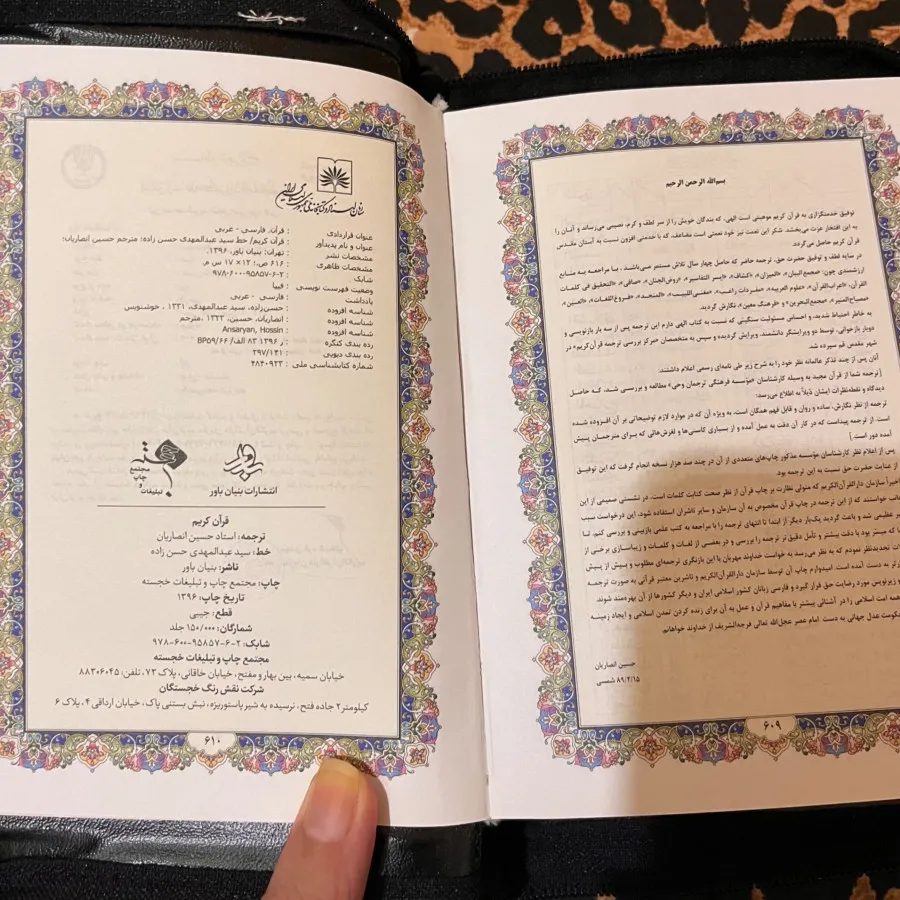 بسم‌الله الرحمن الرحیم
توفیق خدمتگزاری به قرآن کریم موهبتی است الهی، که بندگان خویش را از سر لطف و کرم، نصیبی می‌رساند و آنان را
به این افتخار عزت می‌بخشد. شکر این نعمت نیز خود نعمتی است مضاعف، که با خدمتی افزون نسبت به آستان مقدس
قرآن کریم حاصل می‌گردد.
در سایه لطف و توفیق حضرت حق، ترجمه حاضر که حاصل چهار سال تلاش مستمر می‌باشد، با مراجعه به منابع
ارزشمندی چون: «مجمع البیان»، «المیزان»، «کشاف»، «ایسر التفاسیر»، «روض‌الجنان»، «صافی»، «التحقیق فی کلمات
القرآن»، «اعراب‌القرآن»، «علوم العربیه»، «مفردات راغب»، «مغنی‌اللبیب»، «المنجد»، «فروغ‌اللغات»، «العین»،
«مصباح‌المنیر»، «مجمع‌البحرین» و «فرهنگ معین»، نگارش گردید.
به خاطر احتیاط شدید، و احساس مسئولیت سنگینی که نسبت به کتاب الهی دارم این ترجمه پس از سه بار بازنویسی و
دوبار بازخوانی، توسط دو ویرایشگر دانشمند، ویرایش گردیده و سپس به متخصصان «مرکز بررسی ترجمه قرآن‌کریم» در
شهر مقدس قم سپرده شد.
آنان پس از چند تذکر عالمانه نظر خود را به شرح زیر طی نامه‌ای رسمی اعلام داشتند:
[ترجمه شما از قرآن مجید به وسیله کارشناسان «مؤسسه فرهنگی ترجمان وحی» مطالعه و بررسی شد. که حاصل
دیدگاه و نقطه‌نظرات ایشان ذیلاً به اطلاع می‌رسد:
ترجمه از نظر نگارش، ساده و روان و قابل فهم همگان است. به ویژه آن که در موارد لازم توضیحاتی بر آن افزوده شده
است. از ترجمه پیداست که در کار آن دقت به عمل آمده و از بسیاری کاستی‌ها و لغزش‌هائی که برای مترجمان پیش
آمده دور است.]
پس از اعلام نظر کارشناسان مؤسسه مذکور چاپ‌های متعددی از آن در چند صد هزار نسخه انجام گرفت که این توفیق
از عنایت حضرت حق نسبت به این ترجمه بود.
اخیراً سازمان دارالقرآن‌الکریم که متولی نظارت بر چاپ قرآن از نظر صحت کتابت کلمات است، در نشستی صمیمی از این
خواستند که از این ترجمه در چاپ قرآن مخصوص به آن سازمان و سایر ناشران استفاده شود، این درخواست سبب
عظیمی شد و باعث گردید یک‌بار دیگر از ابتدا تا انتهای ترجمه را با مراجعه به کتب علمی بازبینی و بررسی کنم. لذا
که میسر بود با دقت بیشتر و تأمل دقیق تر ترجمه را بررسی و در بعضی از لغات و کلمات و زیباسازی برخی از
تجدیدنظر نمودم که به نظر می‌رسد به خواست خداوند مهربان با این بازنگری ترجمه‌ای مطلوب و بیش از پیش
به دست آمده است. امیدوارم چاپ آن توسط سازمان دارالقرآن‌الکریم و ناشرین معتبر قرآنی به صورت ترجمه
و زیرنویس مورد رضایت حق قرار گیرد و فارسی زبانان کشور اسلامی ایران و دیگر کشورها از آن بهره‌مند شوند.
همه امت اسلامی را در آشنائی بیشتر با مفاهیم قرآن و عمل به آن برای زنده کردن تمدن اسلامی و ایجاد زمینه
عدل جهانی به دست امام عصر عجل‌الله تعالی فرجه‌الشریف از خداوند خواهانم.
حسین انصاریان
۸۹/۲/۱۵ شمسی
۶۰۹
سازمان اسناد و کتابخانه ملی جمهوری اسلامی ایران
عنوان قراردادی : قرآن. فارسی - عربی
عنوان و نام پدیدآور : قرآن کریم/ خط سید عبدالمهدی حسن زاده؛ مترجم حسین انصاریان؛
مشخصات نشر : تهران: بنیان باور، ۱۳۹۶.
مشخصات ظاهری : ۶۱۶ ص.؛ ۱۲ × ۱۷ س م.
شابک : ۹۷۸-۶۰۰-۹۵۸۵۷-۶-۲
وضعیت فهرست نویسی : فیپا
یادداشت : فارسی - عربی
شناسه افزوده : حسن‌زاده، سید عبدالمهدی، ۱۳۳۱ ، خوشنویس
شناسه افزوده : انصاریان، حسین، ۱۳۲۳ ، مترجم
شناسه افزوده : Ansaryan, Hossin
رده بندی کنگره : BP۵۹/۶۶/الف ۸۳ ۱۳۹۶ ر
رده بندی دیویی : ۲۹۷/۱۴۱
شماره کتابشناسی ملی : ۴۸۴۰۹۲۳
باور
انتشارات بنیان باور
خجسته
مجتمع
چاپ
و
تبلیغات
قرآن کریم
ترجمه: استاد حسین انصاریان
خط: سید عبدالمهدی حسن زاده
ناشر: بنیان باور
چاپ: مجتمع چاپ و تبلیغات خجسته
تاریخ چاپ: ۱۳۹۶
قطع: جیبی
شمارگان: ۱۵۰/۰۰۰ جلد
شابک: ۲-۶-۹۵۸۵۷-۶۰۰-۹۷۸
مجتمع چاپ و تبلیغات خجسته
خیابان سمیه، بین بهار و مفتح، خیابان خاقانی، پلاک ۷۳، تلفن: ۸۸۳۰۶۰۴۵
شرکت نقش رنگ خجستگان
کیلومتر ۲ جاده فتح، نرسیده به شیر پاستوریزه، نبش بستنی پاک، خیابان ارداقی ۴، پلاک ۶
۶۱۰